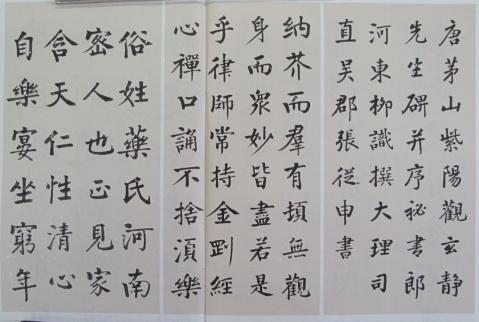 唐茅山紫陽觀玄靜
先生碑并序祕書郎
河東柳識撰大理司
直吳郡張從申書
納芥而羣有頓無觀
身而衆妙皆盡若是
乎律師常持金剛經
心禪口誦不捨湏樂
俗姓藥氏河南
密人也正見家
含天仁性清心
自樂宴坐窮年